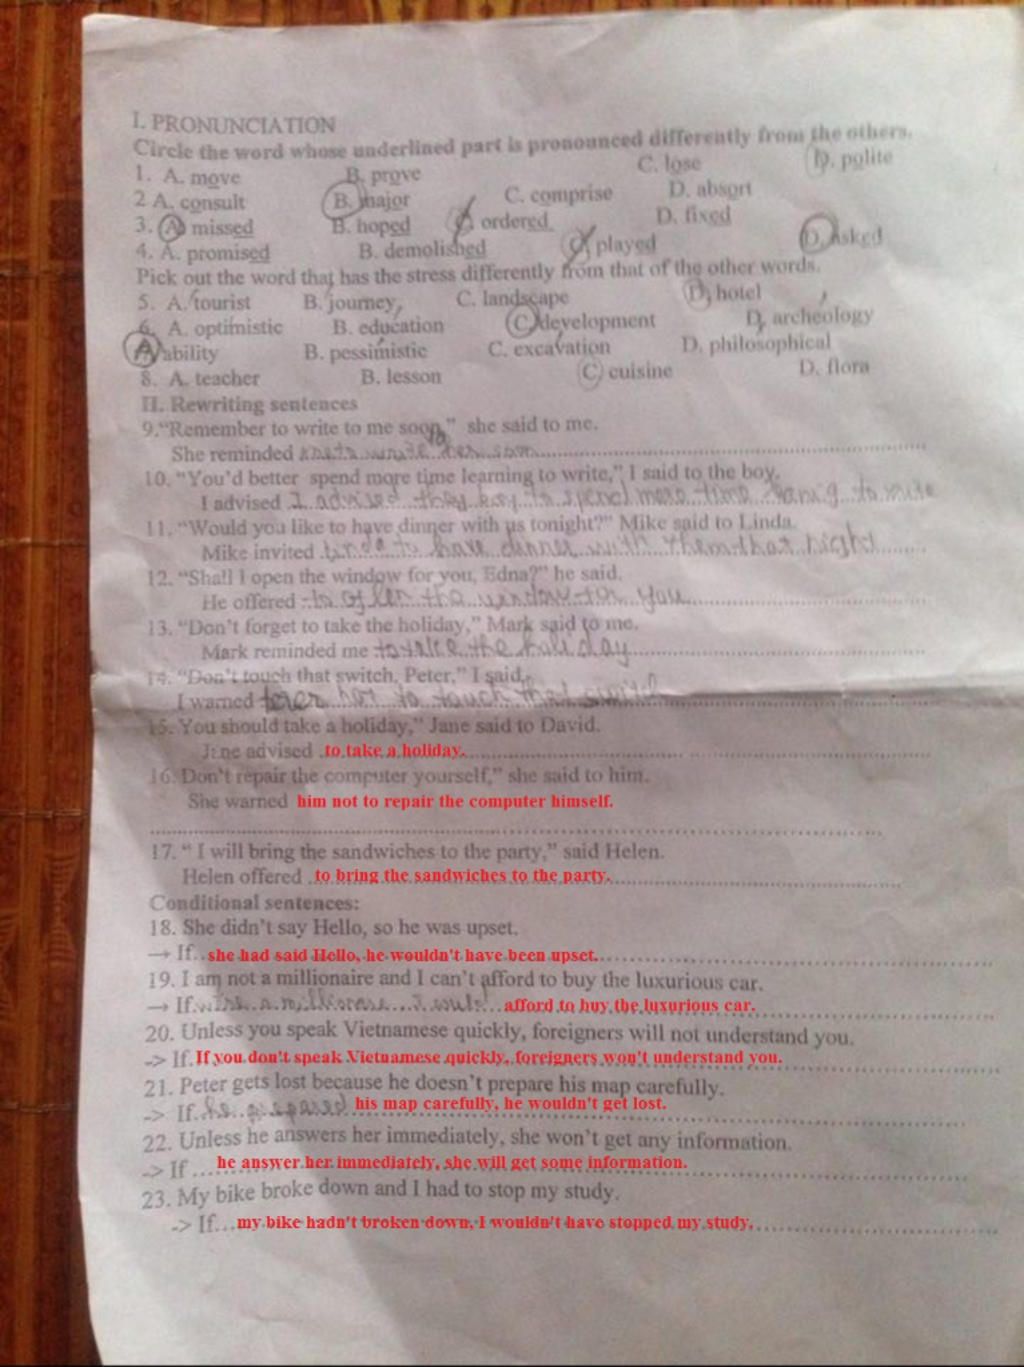 I. PRONUNCIATION
Circle the word whose underlined part is pronounced differently from the others.
1. A. move B. prove C. lose D. polite
2 A. consult B. major C. comprise D. absort
3. A. missed B. hoped C. ordered D. fixed
4. A. promised B. demolished C. played D. asked
Pick out the word that has the stress differently from that of the other words.
5. A. tourist B. journey C. landscape D. hotel
6. A. optimistic B. education C. development D. archeology
A. ability B. pessimistic C. excavation D. philosophical
8. A. teacher B. lesson C. cuisine D. flora
II. Rewriting sentences
9."Remember to write to me soon," she said to me.
She reminded to write her
10. "You'd better spend more time learning to write," I said to the boy.
I advised I advised they boy to spend more time to write
11. "Would you like to have dinner with us tonight?" Mike said to Linda.
Mike invited linda to have dinner with them that night
12. "Shall I open the window for you, Edna?" he said.
He offered to the window for you
13. "Don't forget to take the holiday," Mark said to me.
Mark reminded me to take the holiday
14. "Don't touch that switch, Peter," I said.
I warned not to touch that switch
15. You should take a holiday," Jane said to David.
Jane advised to take a holiday.
16. Don't repair the computer yourself," she said to him.
She warned him not to repair the computer himself.
17. " I will bring the sandwiches to the party," said Helen.
Helen offered to bring the sandwiches to the party.
Conditional sentences:
18. She didn't say Hello, so he was upset.
→ If she had said Hello, he wouldn't have been upset.
19. I am not a millionaire and I can't afford to buy the luxurious car.
→ If a I afford to buy the luxurious car.
20. Unless you speak Vietnamese quickly, foreigners will not understand you.
-> If If you don't speak Vietnamese quickly, foreigners won't understand you.
21. Peter gets lost because he doesn't prepare his map carefully.
-> If he prepared his map carefully, he wouldn't get lost.
22. Unless he answers her immediately, she won't get any information.
-> If he answer her immediately, she will get some information.
23. My bike broke down and I had to stop my study.
-> If my bike hadn't broken down, I wouldn't have stopped my study.